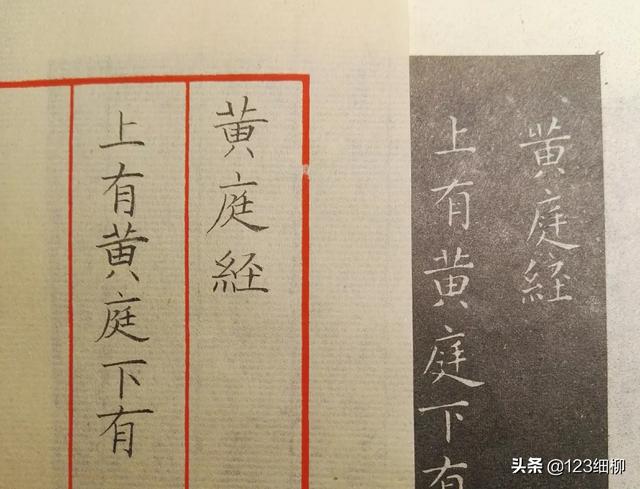 黄庭経
上有黄庭下有
黄庭経
上有黄庭下有
头条 @123细柳